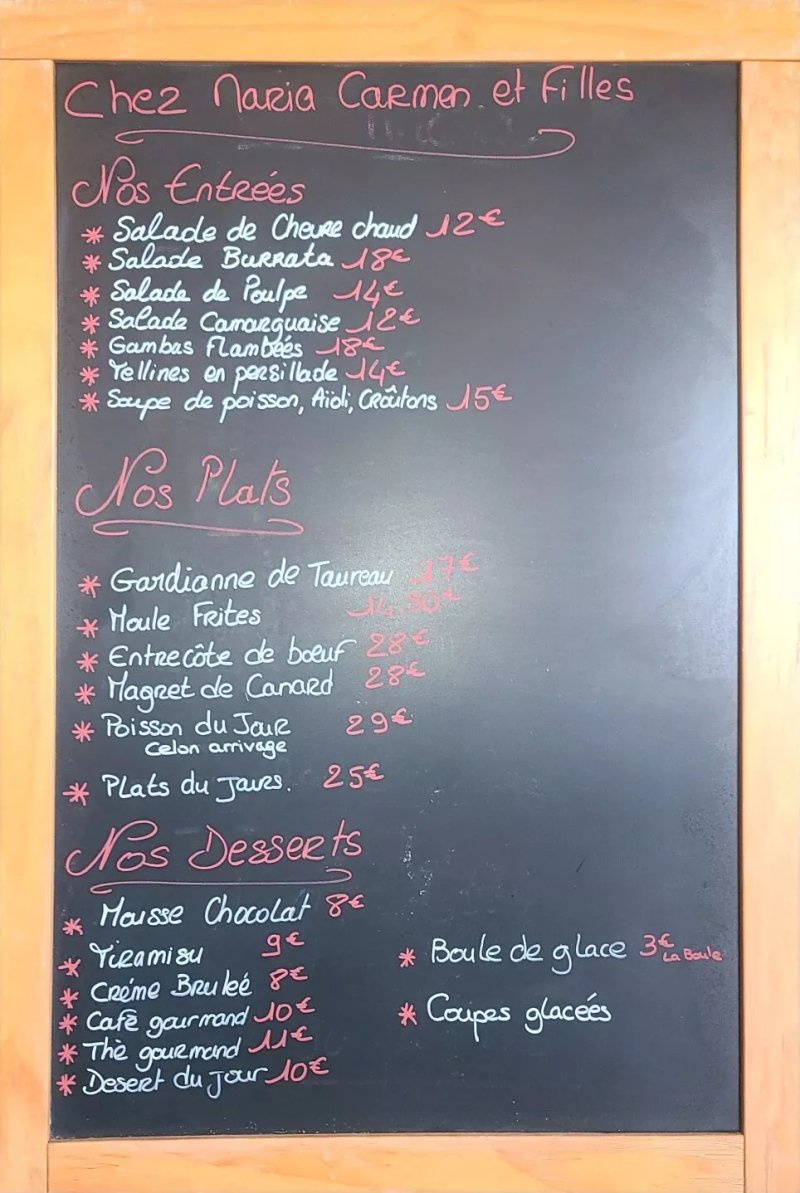 Chez Maria Carmen et Filles
Nos Entrées
* Salade de Chevre chaud 12€
* Salade Burrata 18€
* Salade de Poulpe 14€
* Salade Camarguaise 12€
* Gambas Flambéés 18€
* Tellines en persillade 14€
* Soupe de poisson, Aïoli, Croûtons 15€
Nos Plats
* Gardianne de Taureau 17€
* Moule Frites 14,50€
* Entrecôte de bœuf 28€
* Magret de Canard 28€
* Poisson du Jour 29€
Celon arrivage
* Plats du Jours. 25€
Nos Desserts
* Mousse Chocolat 8€
* Tiramisu 9€
* Créme Bruleé 8€
* Cafè gourmand 10€
* Thè gourmand 11€
* Desert du jour 10€
* Boule de glace 3€ La Boule
* Coupes glacéés